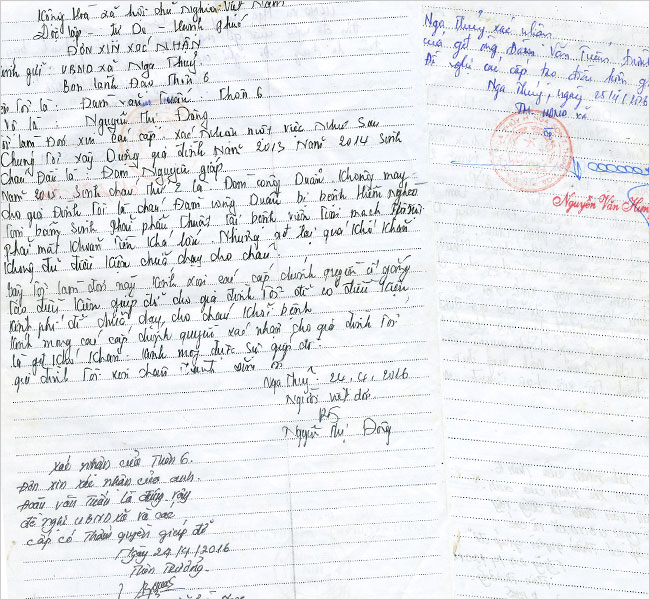 Cộng Hoà xã hội chủ Nghĩa Việt Nam
Độc lập - Tự Do - Hạnh Phúc
ĐƠN XIN XÁC NHẬN
Kính gửi: UBND xã Nga Thuỷ
Ban lãnh Đạo Thôn 6
Tên Tôi là: Đam văn Tuân. Thôn 6
Vợ là: Nguyễn Thị Đông
Tôi làm Đơn xin các cấp xác Nhận một việc Như Sau
Chúng Tôi xây Dựng gia đình Năm 2013 Năm 2014 Sinh
cháu Đầu là Đam Nguyên giáp
Năm 2015 sinh cháu Thứ 2 là Đam Công Quân không may
cho gia Đình Tôi là cháu Đam Công Quân bị bệnh Hiểm nghèo
Tim bẩm sinh phải phẫu Thuật tại bệnh viện Tim mạch Hà Nội
phải mất khoản Tiền khá lớn. Nhưng gđ lại quá khó khăn
không đủ điều kiện chữa chạy cho cháu
Vậy Tôi làm đơn này kính xin các cấp chính quyền cố gắng
Tạo điều kiện giúp đỡ cho gia đình Tôi để có điều kiện
kinh phí để chữa chạy cho cháu khỏi bệnh
kính mong các cấp chính quyền xác nhận cho gia đình Tôi
là gđ khó khăn. kính mong được sự giúp đỡ
gia đình Tôi xin chân thành cảm ơn
Nga Thuỷ 24.4.2016
Người viết đơn
Nguyễn Thị Đông
xác nhận của Thôn 6.
Đơn xin xác nhận của anh
văn Tuân là đúng vậy
đề nghị UBND xã và các
cấp có thẩm quyền giúp đỡ
Ngày 24/4/2016
Thôn Trưởng
Nga Thuỷ xác nhận
của gđ ông Đam Văn Tuân
Đề nghị các cấp tạo điều kiện
Nga Thuỷ, ngày 25/4/2016
TM UBND xã
Nguyễn Văn